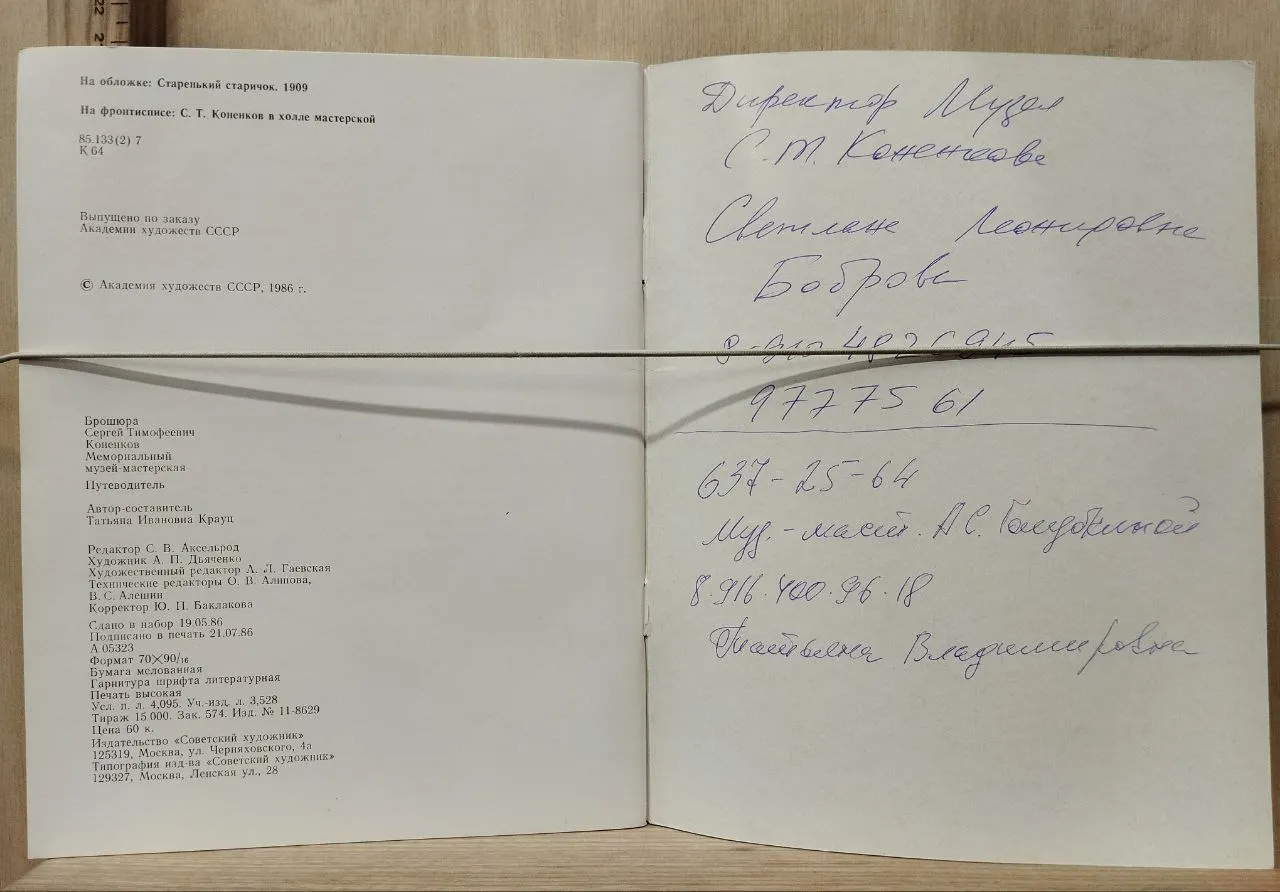 На обложке: Старенький старичок. 1909
На фронтисписе: С. Т. Коненков в холле мастерской
85.133(2) 7
К 64
Выпущено по заказу
Академии художеств СССР
© Академия художеств СССР, 1986 г.
Брошюра
Сергей Тимофеевич
Коненков
Мемориальный
музей-мастерская
Путеводитель
Автор-составитель
Татьяна Ивановна Крауц
Редактор С. В. Аксельрод
Художник А. П. Дьяченко
Художественный редактор А. Л. Гаевская
Технические редакторы О. В. Алипова,
В. С. Алешин
Корректор Ю. П. Баклакова
Сдано в набор 19.05.86
Подписано в печать 21.07.86
А 05323
Формат 70×90/16
Бумага мелованная
Гарнитура шрифта литературная
Печать высокая
Усл. п. л. 4,095. Уч.-изд. л. 3,528
Тираж 15 000. Зак. 574. Изд. № 11-8629
Цена 60 к.
Издательство «Советский художник»
125319, Москва, ул. Черняховского, 4а
Типография изд-ва «Советский художник»
129327, Москва, Ленская ул., 28
Директор Музея
С. Т. Коненкова
Светлана
Боброва
977 75 61
637-25-64
Муз.-маст. А.С. Голубкиной
8.916.400.96.18
Татьяна Владимировна
22